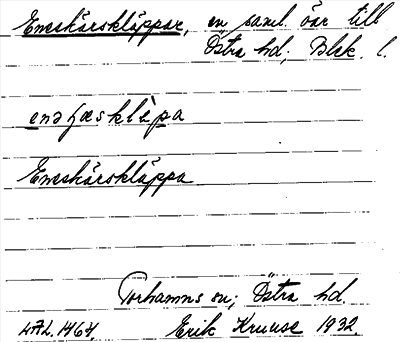 Eneskärskläppar, en saml. öar till
Östra hd, Blek. l.
Eneskärskläppa
Torhamns sn; Östra hd.
LAL. 1464, Erik Kruuse 1932.